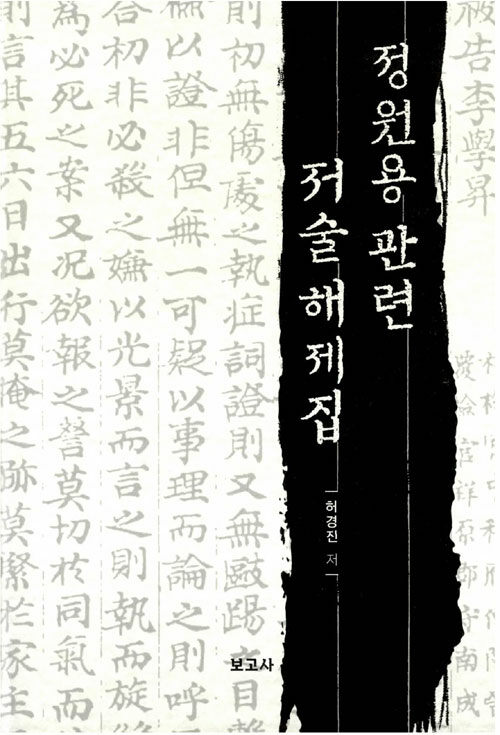 정원용 관련
저술해제집
허경진 저
보고사
被告李學昇
則初無傷處之執症詞證則又無毆踢之
以證非但無一可疑以事理而論之則呼
合初非必殺之嫌以光景而言之則執而旋
爲必死之案又況欲報之讐莫切於同氣而
則言其五六日出行莫掩之跡莫緊於家主